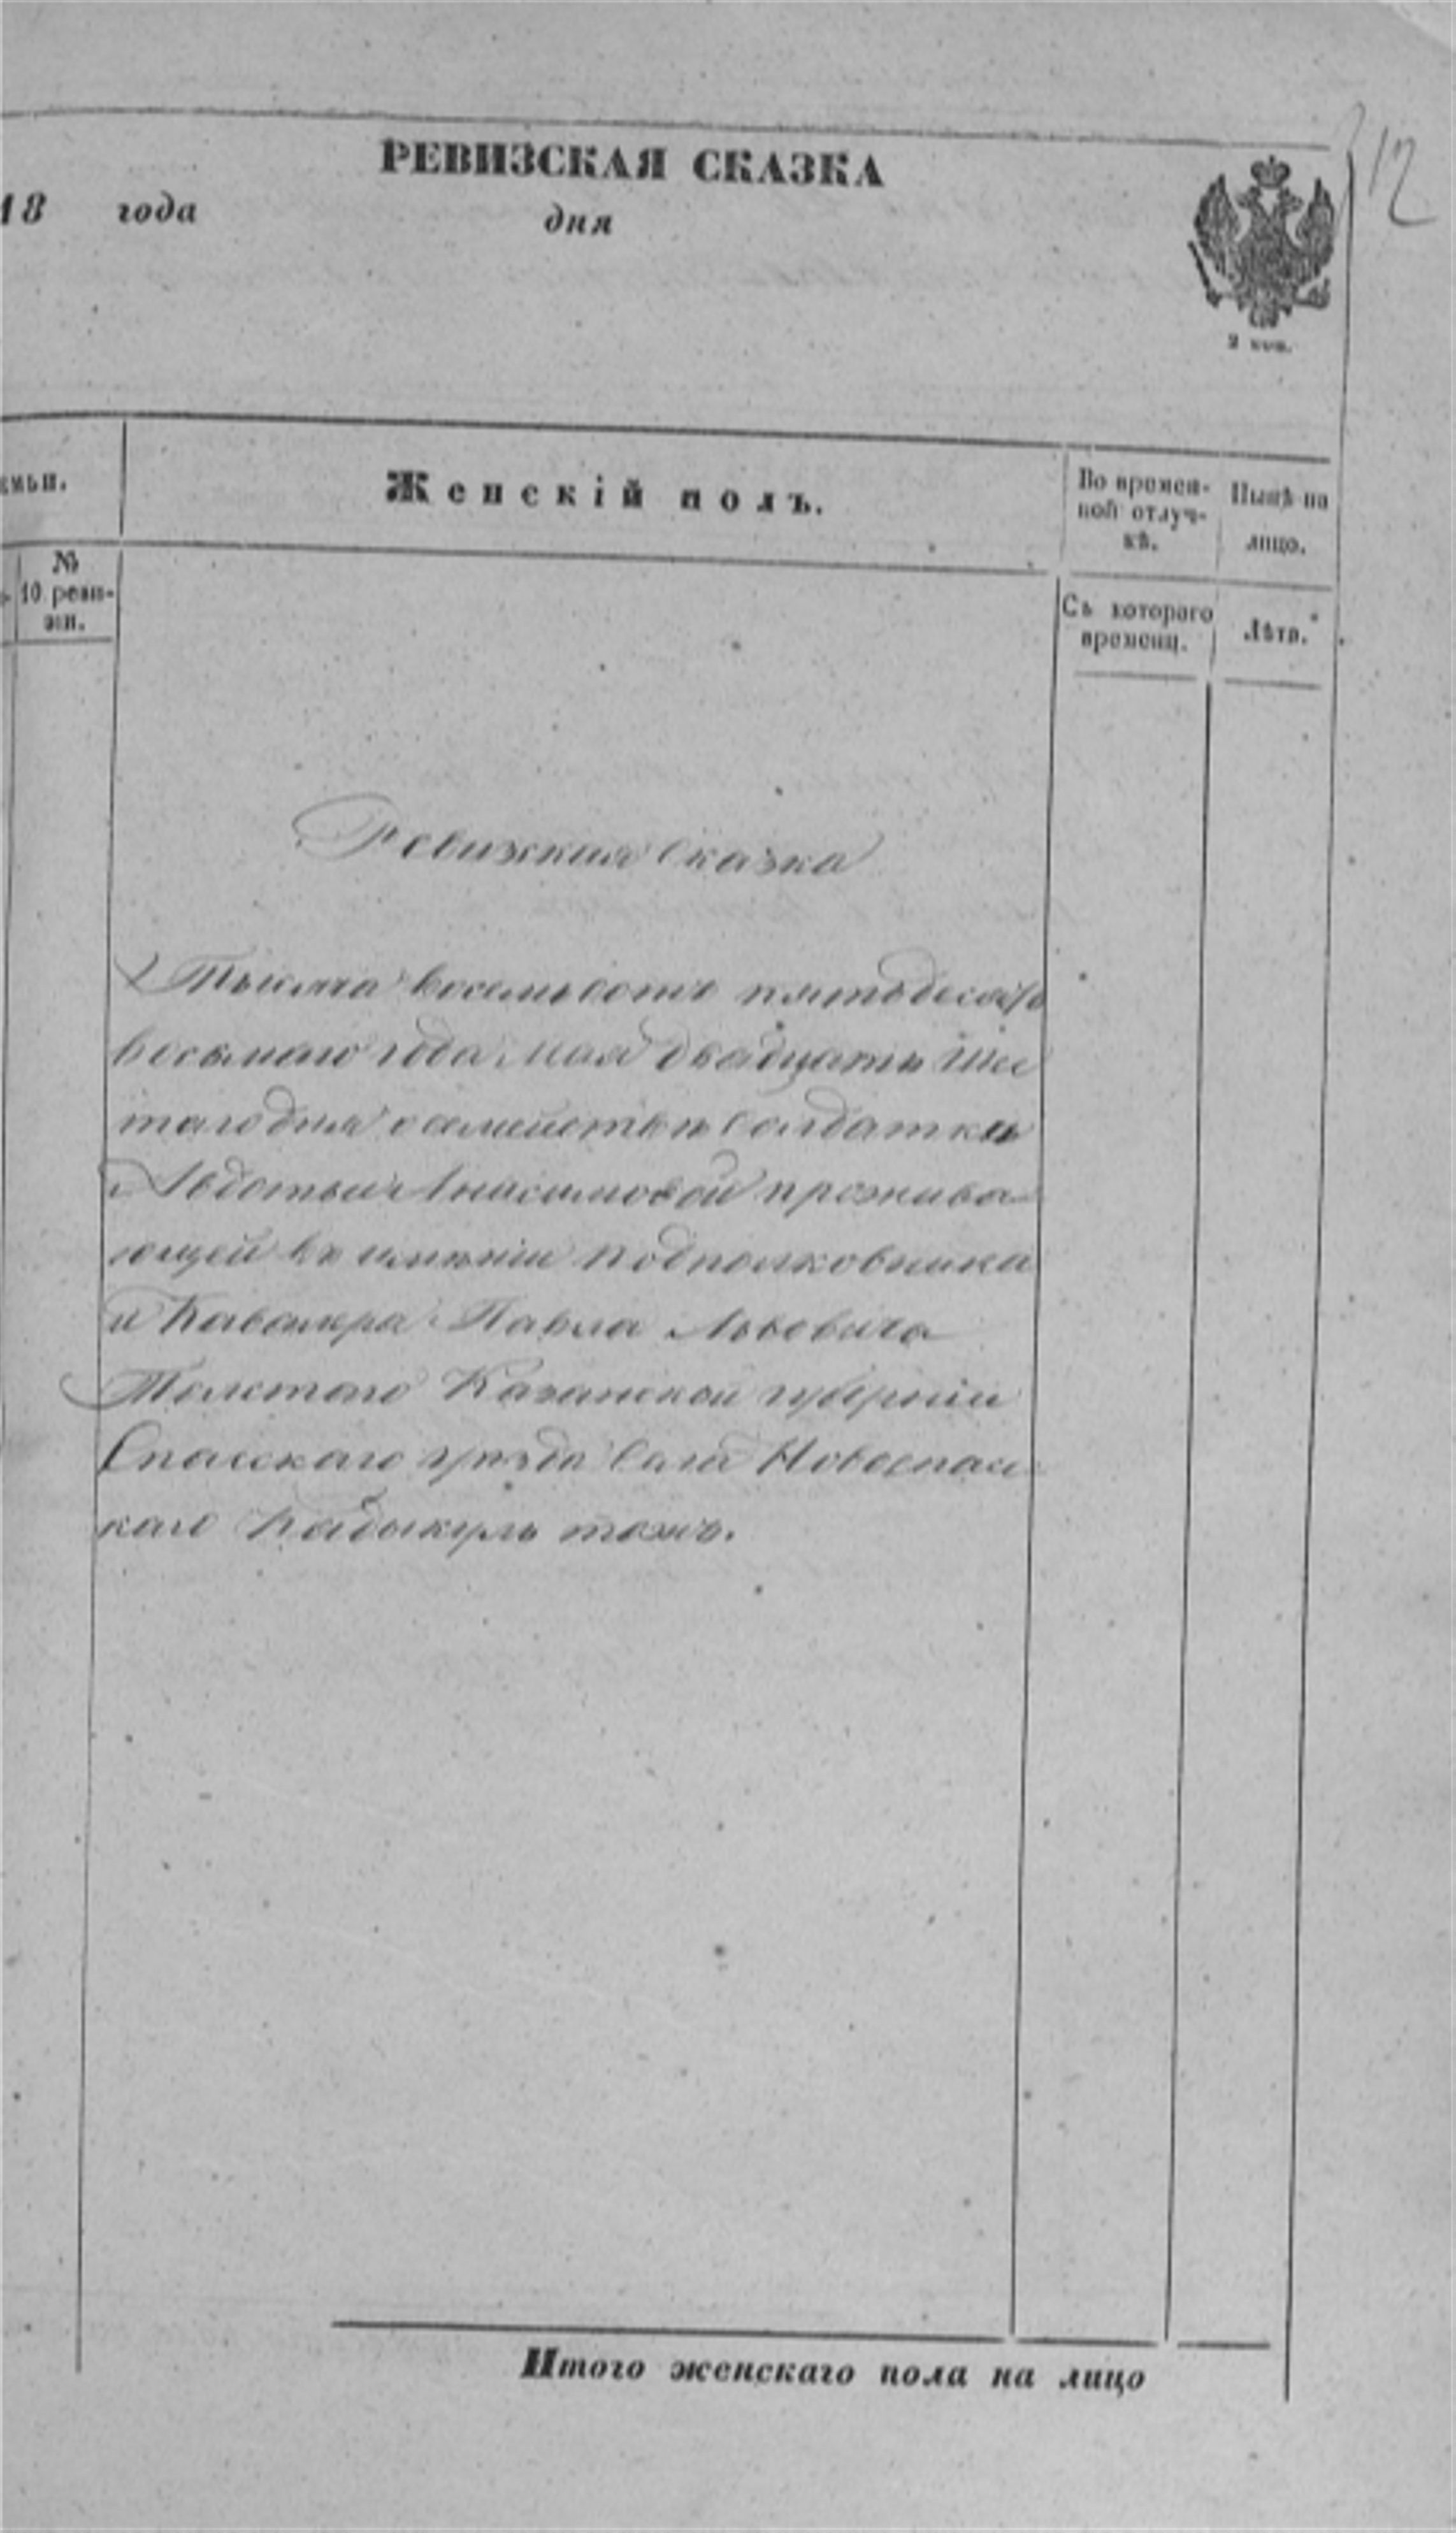 12
РЕВИЗСКАЯ СКАЗКА
18 года дня
2 коп.
емьи.
Женскій полъ.
Во времен-
ной отлуч-
кѣ.
Нынѣ на
лицо.
№
10 реви-
зіи.
Съ котораго
времени.
Лѣта.
Ревижкая Сказка
Тысяча восемьсотъ пятьдесятъ
восьмаго года Мая двадцать Шес
таго дня о семействѣ Солдатки
Авдотьи Анисимовой прожива
ющей въ имѣніи подполковника
и Кавалера Павла Львовича
Толстаго Казанской губерніи
Спасскаго уѣзда Села Новоспас
каго Кадыкуль тожъ.
Итого женскаго пола на лицо